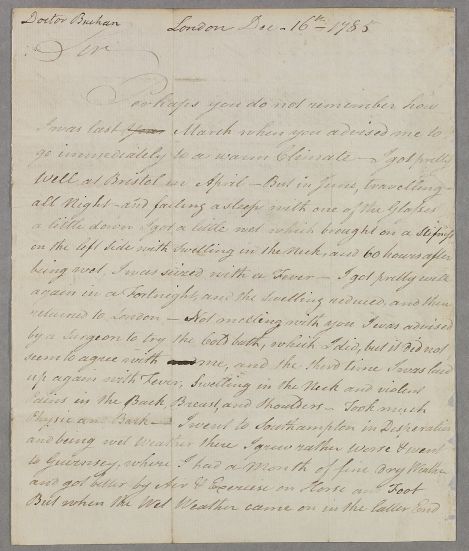 Doctor Buchan
London Dec. 16th 1785
Sir
Perhaps you do not remember how
I was last Year March when you advised me to
go immediately to a warm Climate — I got pretty
Well at Bristol in April — But in June, travelling
all Night — and falling asleep with one of the Glasses
a little down I got a little wet which brought on a Stifness
on the left Side with Swelling in the Neck, and 60 hours after
being wet, I was seized with a Fever — I got pretty well
again in a Fortnight, and the Swelling reduced, and then
returned to London — Not meeting with you I was advised
by a Surgeon to try the Cold bath, which I did, but it did not
seem to agree with me, and the third time I was laid
up again with Fever, Swelling in the Neck and violent
Pains in the Back, Breast, and Shoulders — Took much
Physic and Bark — I went to Southampton in Desperation
and being wet Weather there I grew rather worse & went
to Guernsey, where I had a Month of fine dry Weather
and got better by Air & Exercise on Horse and Foot
But when the Wet Weather came on in the latter End